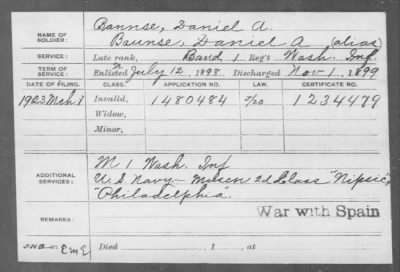 NAME OF SOLDIER: Bannse, Daniel A.
Baunse, Daniel A (alias)
SERVICE: Late rank, Band 1 Reg't Wash. Inf.
TERM OF SERVICE: Enlisted July 12, 1898. Discharged Nov 1, 1899
DATE OF FILING. CLASS. APPLICATION NO. LAW. CERTIFICATE NO.
1923 Mch 1 Invalid, 1480484 7/20 1234479
Widow,
Minor,
ADDITIONAL SERVICES: M 1 Wash. Inf
U S Navy - Muscn 2d Class "Nipsic",
"Philadelphia".
REMARKS: War with Spain
Died , 1 , at